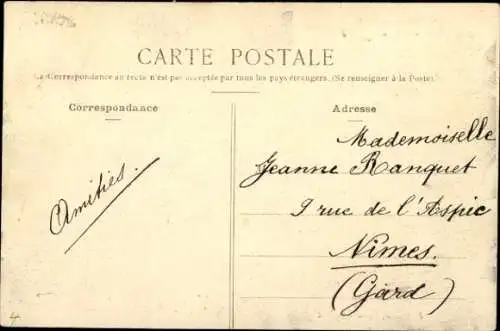 CARTE POSTALE
La Correspondance au recto n'est pas acceptée par tous les pays étrangers. (Se renseigner à la Poste)
Correspondance
Adresse
Amitiés.
Mademoiselle
Jeanne Ranquet
9 rue de l'Aspic
Nîmes.
(Gard)
4